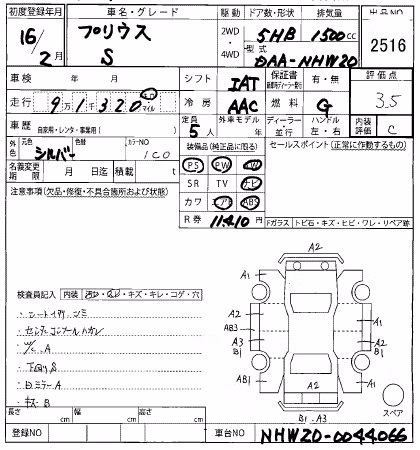 初度登録年月 車名・グレード 駆動 ドア数・形状 排気量 出品NO
16/2月 プリウス S 2WD・4WD 5HB 1500cc 2516
型式 DAA-NHW20
車検 年 月 シフト IAT 保証書 有・無 評価点
走行 9万1千320 キロ マイル 冷房 AAC 燃料 G 3.5
車歴 自家用・レンタ・事業用( ) 定員 5人 外車モデル 年 ディーラー・並行 ハンドル 左・右 内装評価 C
外色 元色 シルバー 色替 カラーNO 1C0 装備品(純正品に限る) セールスポイント(正常に作動するもの)
名義変更期限 月 日迄 積載 t PS PW
注意事項(欠品・修復・不具合箇所および状態) SR TV ナビ
カワ エアB ABS
R券 11410
Fガラス トビ石・キズ・ヒビ・ワレ・リペア跡
検査員記入 内装 キズ・キレ・コゲ・穴
・シートイタミ シミ
・センターコンソールハガレ
・W/C.A
・下回りS
・Dミラー A
・キズ B
A2
A1 A1
A2 AB3 A3 B1
A1 A2 B1
AB1 A1
A2
B1 A3
スペア
長さ cm 幅 cm 高さ cm
登録NO 車台NO NHW20-0044066